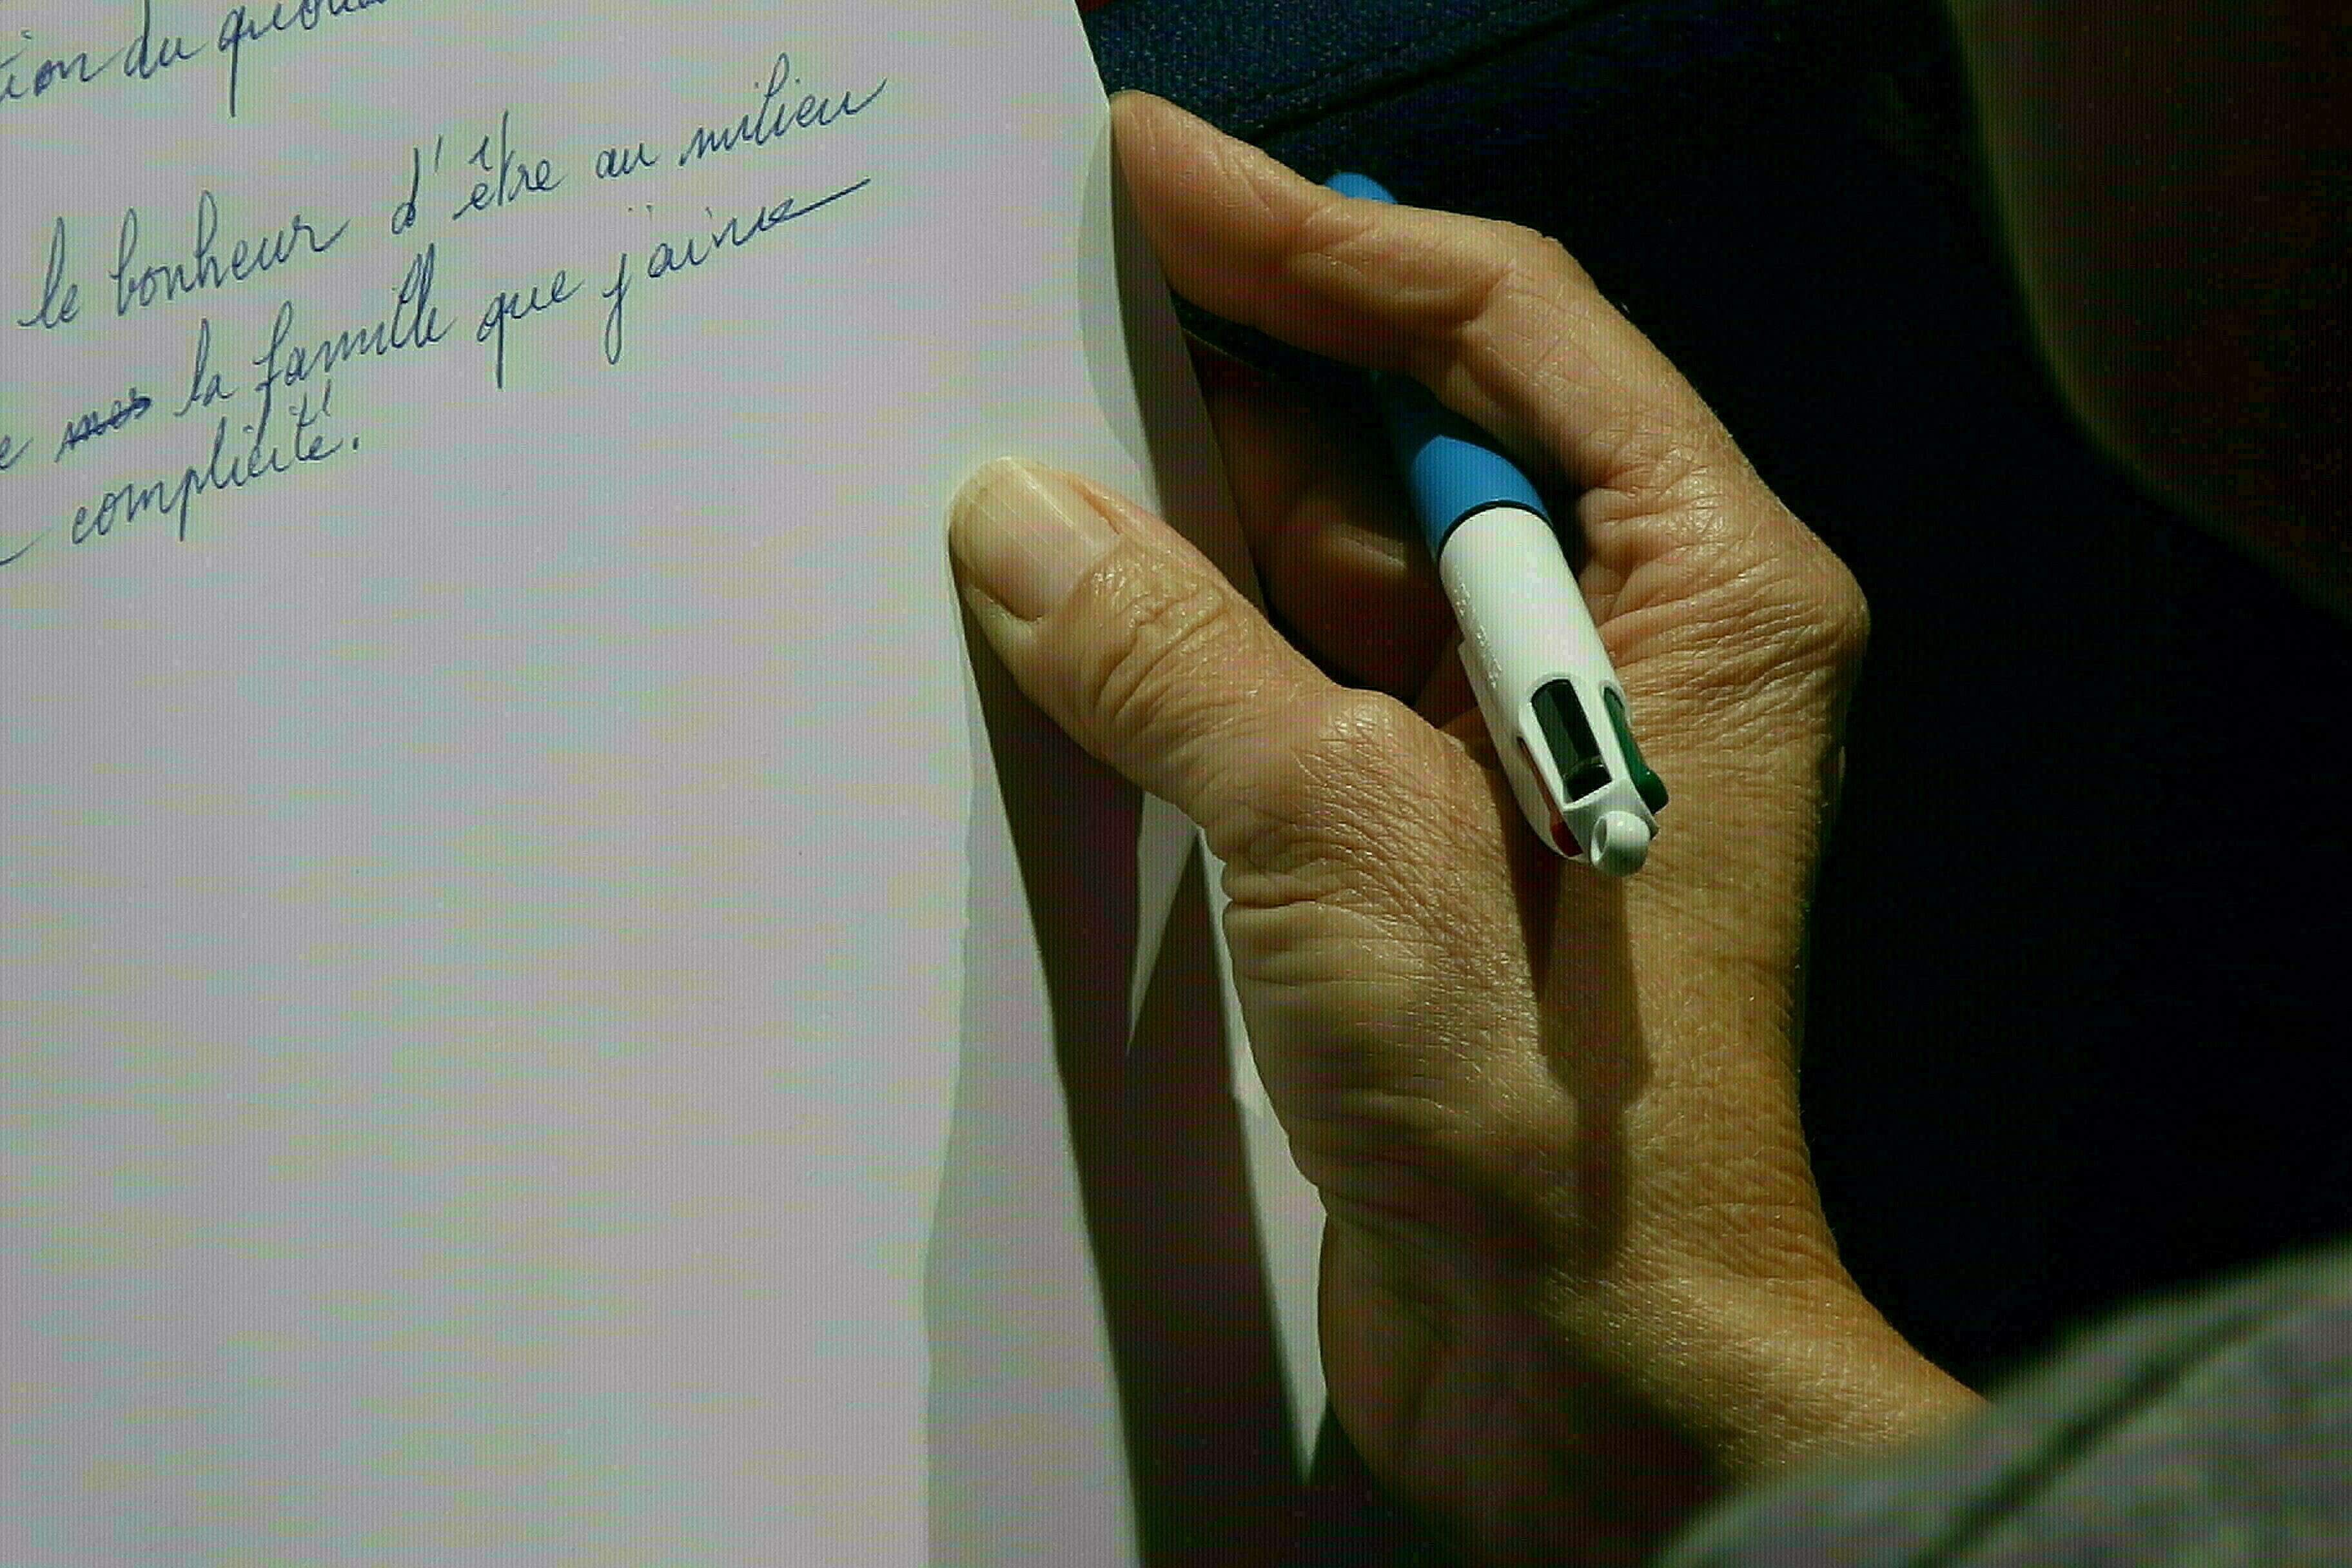 ion du quo
le bonheur d'être au milieu
e mes la famille que j'aime
complicité.